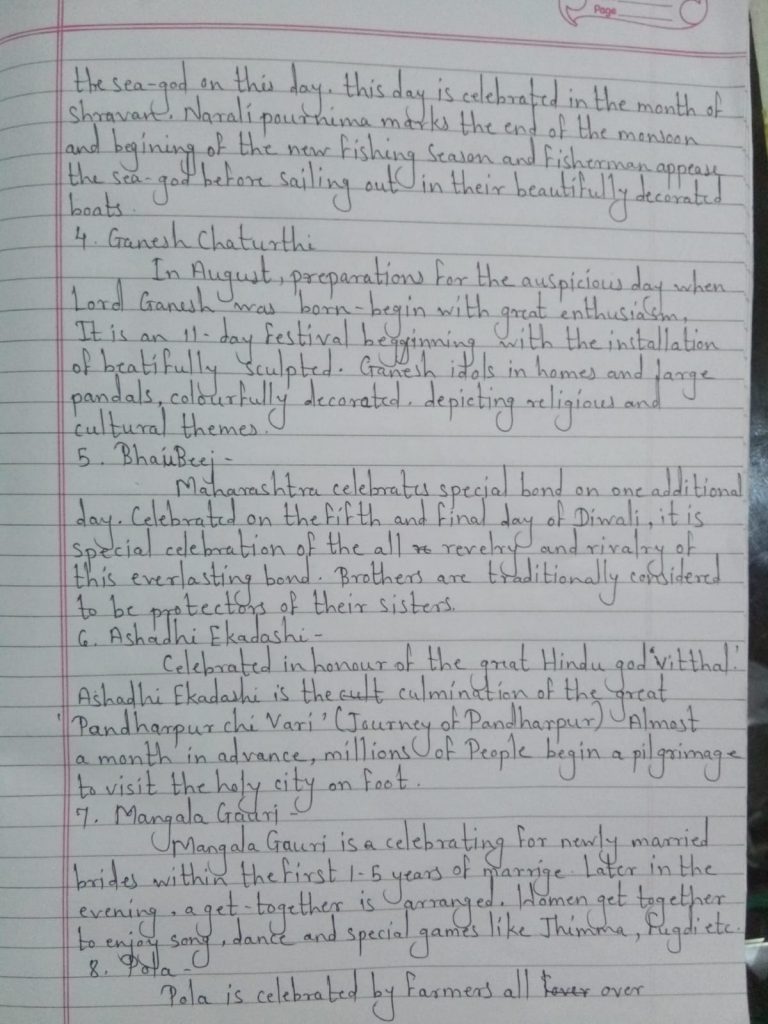 Page
the sea-god on this day. this day is celebrated in the month of
Shravan. Narali pournima marks the end of the monsoon
and begining of the new fishing season and fisherman appease
the sea-god before sailing out in their beautifully decorated
boats.
4. Ganesh Chaturthi
In August, preparations for the auspicious day when
Lord Ganesh was born-begin with great enthusiasm,
It is an 11-day festival begginning with the installation
of beatifully sculpted. Ganesh idols in homes and large
pandals, colourfully decorated. depicting religious and
cultural themes.
5. BhauBeej-
Maharashtra celebrates special bond on one additional
day. Celebrated on the fifth and final day of Diwali, it is
special celebration of the all revelry and rivalry of
this everlasting bond. Brothers are traditionally considered
to be protectors of their sisters.
6. Ashadhi Ekadashi-
Celebrated in honour of the great Hindu god 'Vitthal.'
Ashadhi Ekadashi is the culmination of the great
'Pandharpur chi Vari' (Journey of Pandharpur) Almost
a month in advance, millions of People begin a pilgrimage
to visit the holy city on foot.
7. Mangala Gauri-
Mangala Gauri is a celebrating for newly married
brides within the first 1-5 years of marrige. Later in the
evening, a get-together is arranged. Women get together
to enjoy song, dance and special games like Jhimma, fugdi etc.
8. Pola-
Pola is celebrated by farmers all over